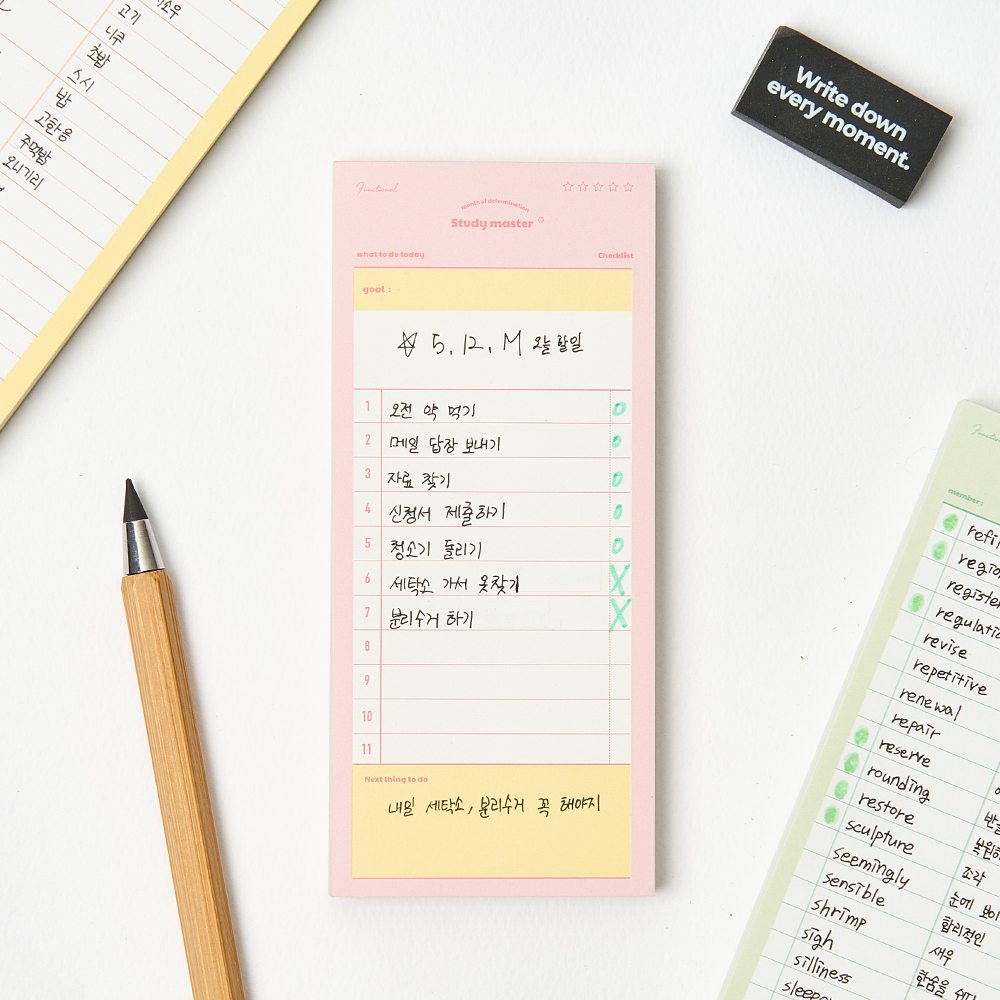 고기
니쿠
초밥
스시
밥
고한응
주먹밥
오니기리
Write down
every moment.
Functional
month of determination
Study master
what to do today
Checklist
goal :
5, 12, M 오늘 할일
1 오전 약 먹기 O
2 메일 답장 보내기 O
3 자료 찾기 O
4 신청서 제출하기 O
5 청소기 돌리기 O
6 세탁소 가서 옷찾기 X
7 분리수거 하기 X
8
9
10
11
Next thing to do
내일 세탁소, 분리수거 꼭 해야지
member :
register
revise
repetitive
renewal
repair
reserve
rounding
restore
sculpture
seemingly
조각
sensible
shrimp
합리적인
sigh
새우
silliness